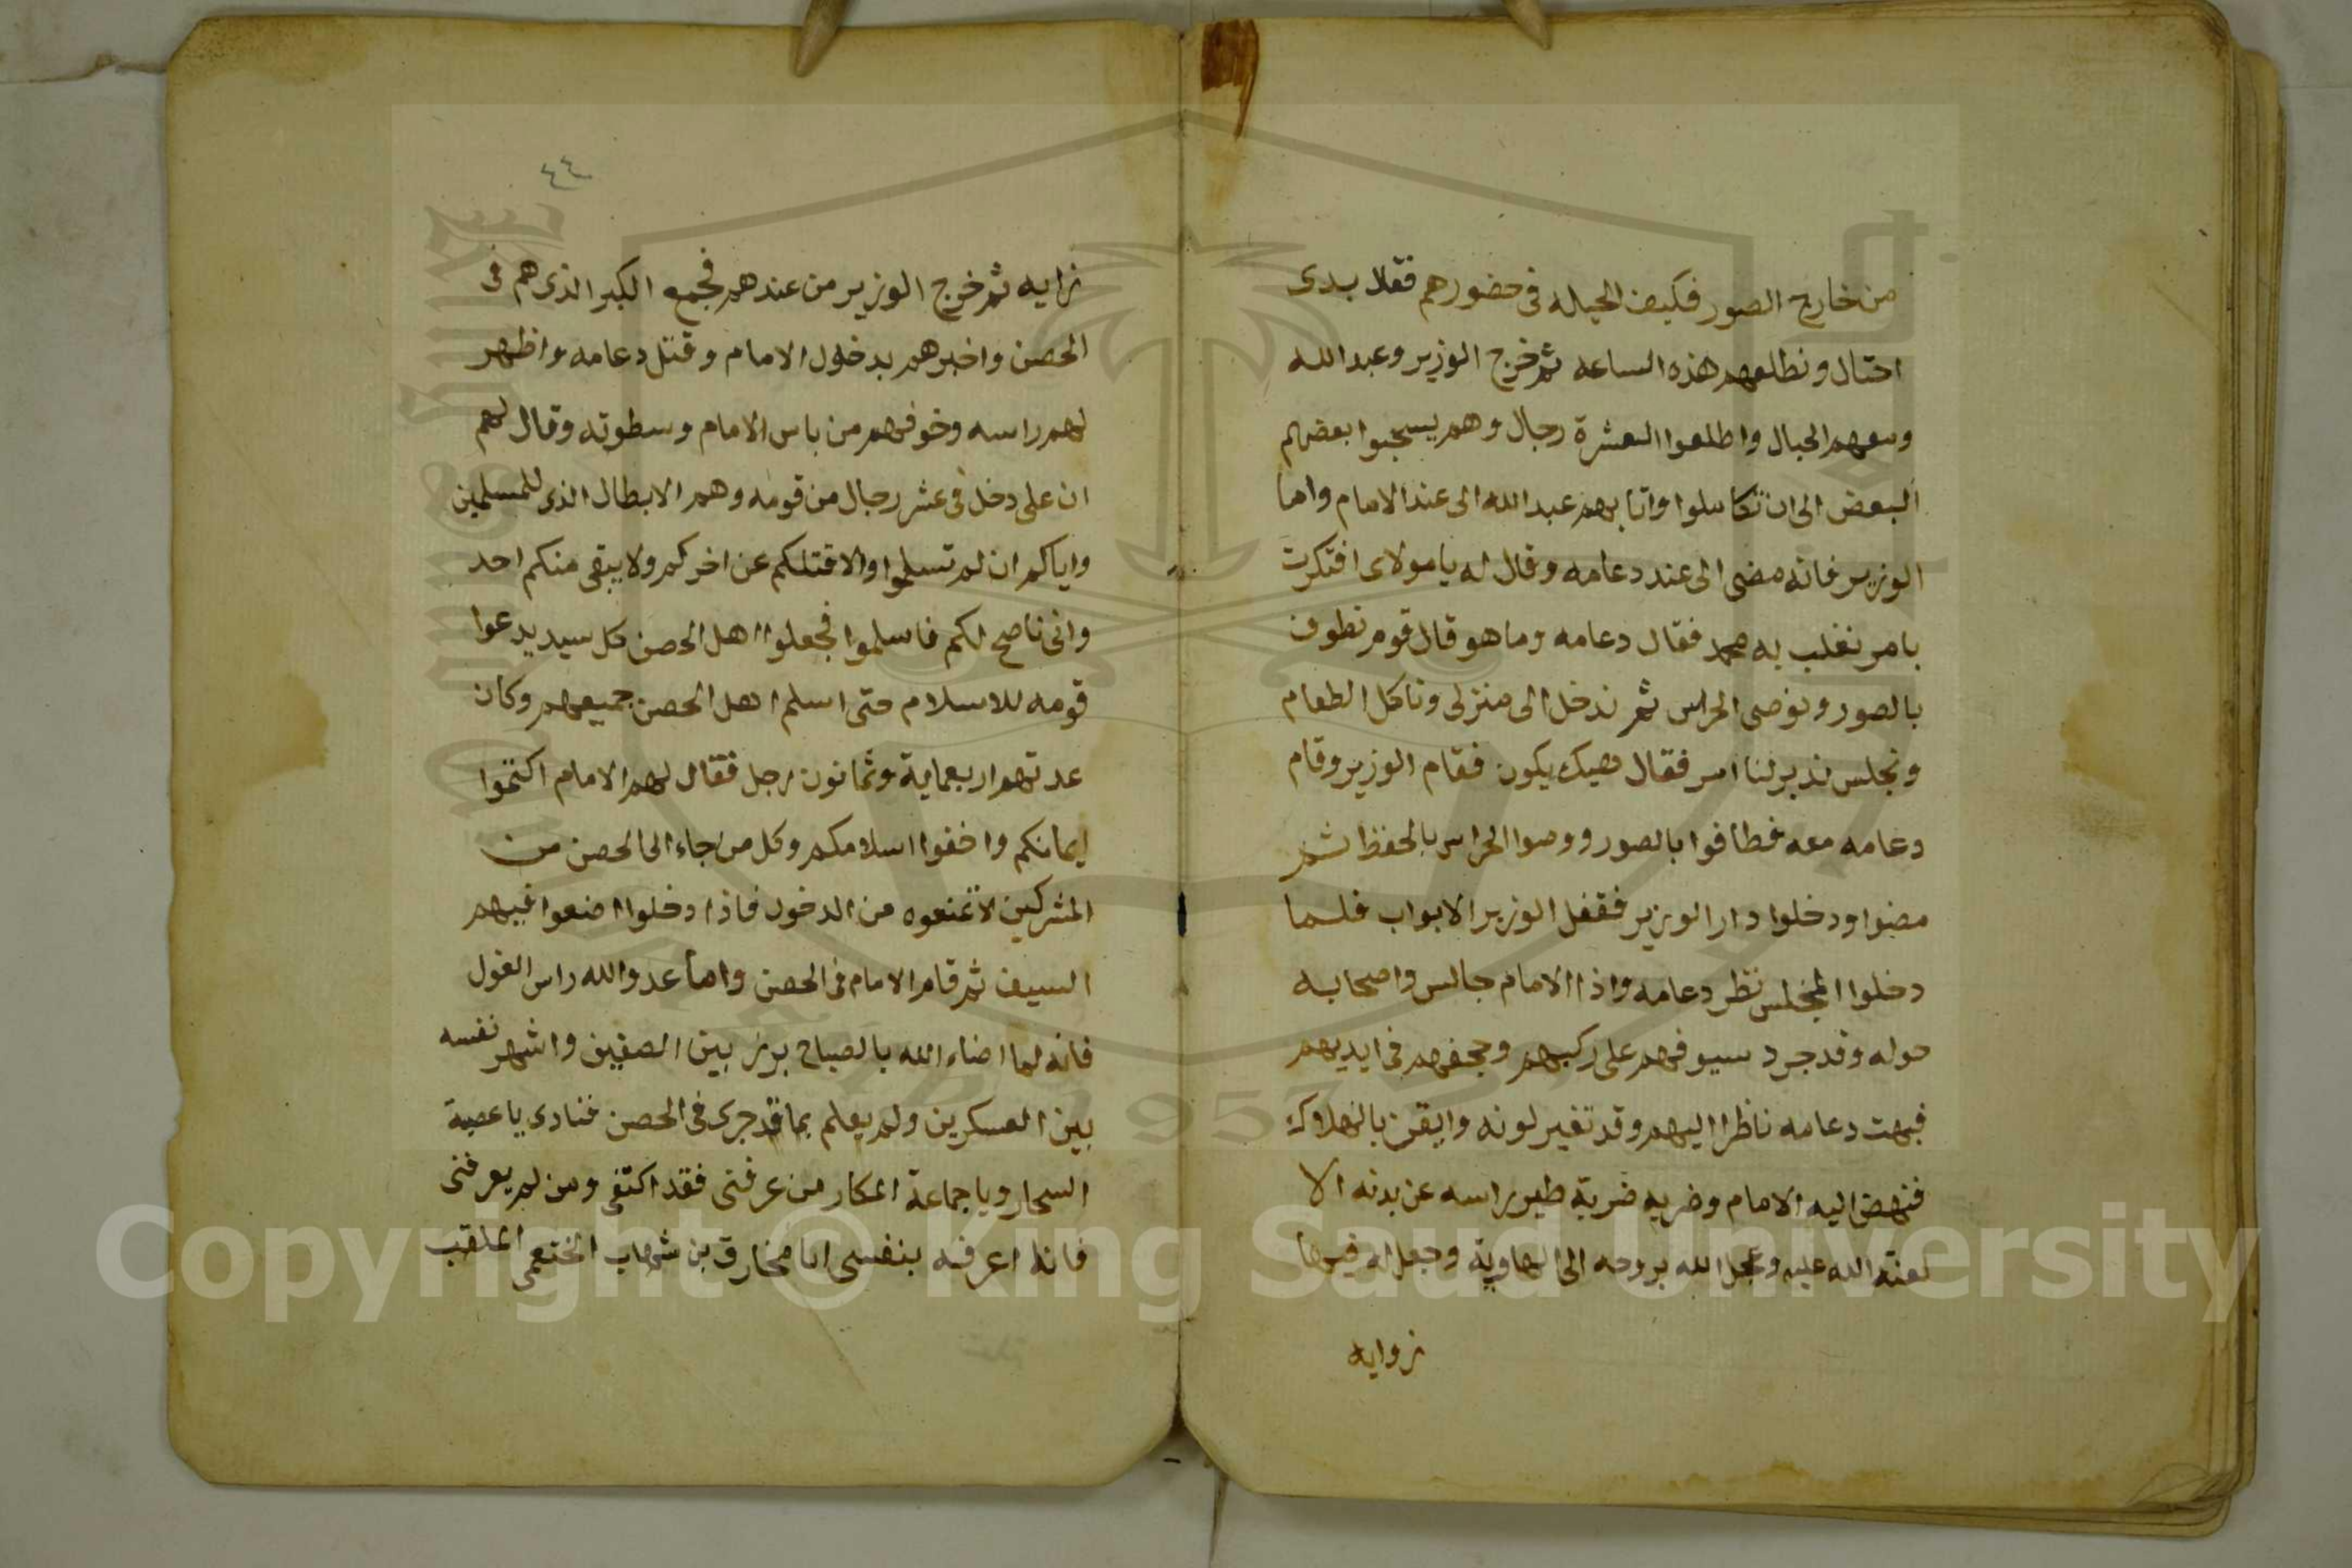 من خارج الصور فكيف الحيله فى حضورهم فقلا بدى
احتال ونطلعهم هذه الساعه ثم خرج الوزير وعبدالله
ومعهم الحبال واطلعوا العشرة رجال وهم يسحبوا بعضهم
البعض الى ان تكاملوا واتا بهم عبدالله الى عند الامام واما
الوزير فانه مضى الى عند دعامه وقال له يا مولاى افتكرت
بامر نغلب به محمد فقال دعامه وما هو قال قوم نطوف
بالصور ونوصى الحراس ثم ندخل الى منزلى وناكل الطعام
ونجلس ندبر لنا امر فقال هيك يكون فقام الوزير وقام
دعامه معه فطافوا بالصور ووصوا الحراس بالحفظ ثم
مضوا ودخلوا دار الوزير فقفل الوزير الابواب فلما
دخلوا المجلس نظر دعامه واذا الامام جالس واصحابه
حوله وقد جرد سيوفهم على ركبهم وحجفهم فى ايديهم
فبهت دعامه ناظرا اليهم وقد تغير لونه وايقن بالهلاك
فنهض اليه الامام وضربه ضربة طير راسه عن بدنه الا
لعنة الله عليه وعجل الله بروحه الى الهاوية وجعل له فيها
زوايه
٤٤
زايه ثم خرج الوزير من عندهم فجمع الكبر الذى هم فى
الحصن واخبرهم بدخول الامام وقتل دعامه واظهر
لهم راسه وخوفهم من باس الامام وسطوته وقال لهم
ان على دخل فى عشر رجال من قومه وهم الابطال الذى للمسلمين
واياكم ان لم تسلموا والا قتلكم عن اخركم ولا يبقى منكم احد
وانى ناصح لكم فاسلموا فجعلوا اهل الحصن كل سيد يدعوا
قومه للاسلام حتى اسلم اهل الحصن جميعهم وكان
عدتهم اربعماية وثمانون رجل فقال لهم الامام اكتموا
ايمانكم واخفوا اسلامكم وكل من جاء الى الحصن من
المشركين لا تمنعوه من الدخول فاذا دخلوا اضعوا فيهم
السيف ثم قام الامام فى الحصن واما عدو الله راس الغول
فانه لما اضاء الله بالصباح برز بين الصفين واشهر نفسه
بين العسكرين ولم يعلم بما قد جرى فى الحصن فنادى يا عصبة
السحار ويا جماعة المكار من عرفنى فقد اكتفى ومن لم يعرفنى
فانا اعرفه بنفسى انا مخارق بن شهاب الخثعمى الملقب
Copyright © King Saud University